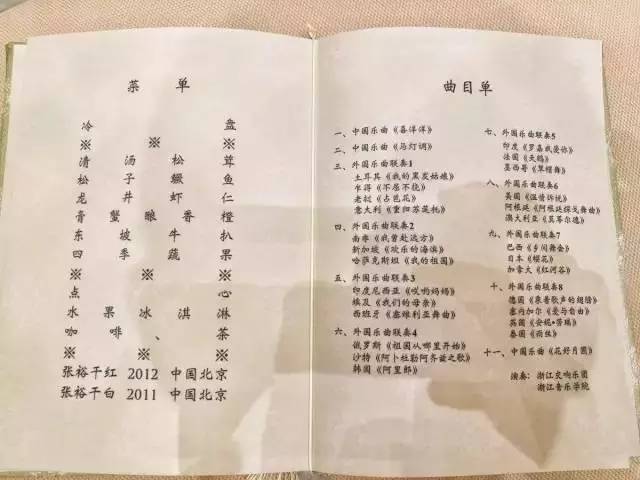 菜 单
冷 盘
※ ※
清 汤 松 茸
松 子 鳜 鱼
龙 井 虾 仁
膏 蟹 酿 香 橙
东 坡 牛 扒
四 季 蔬 果
※ ※
点 心
水 果 冰 淇 淋
咖 啡 、 茶
※ ※ ※
张裕干红 2012 中国北京
张裕干白 2011 中国北京
曲目单
一、中国乐曲《喜洋洋》
二、中国乐曲《马灯调》
三、外国乐曲联奏1
土耳其《我的黑发姑娘》
乍得《不屈不挠》
老挝《占芭花》
意大利《重归苏莲托》
四、外国乐曲联奏2
南非《我曾赴远方》
新加坡《欢乐的海滨》
哈萨克斯坦《我的祖国》
五、外国乐曲联奏3
印度尼西亚《哎哟妈妈》
埃及《我们的母亲》
西班牙《塞维利亚舞曲》
六、外国乐曲联奏4
俄罗斯《祖国从哪里开始》
沙特《阿卜杜勒阿齐兹之歌》
韩国《阿里郎》
七、外国乐曲联奏5
印度《罗摩我爱你》
法国《天鹅》
墨西哥《草帽舞》
八、外国乐曲联奏6
美国《温情诉忧》
阿根廷《阿根廷探戈舞曲》
澳大利亚《莫等尔德》
九、外国乐曲联奏7
巴西《乡间舞会》
日本《樱花》
加拿大《红河谷》
十、外国乐曲联奏8
德国《乘着歌声的翅膀》
塞内加尔《爱与自由》
英国《安妮•劳瑞》
泰国《雨丝》
十一、中国乐曲《花好月圆》
演奏：浙江交响乐团
浙江音乐学院